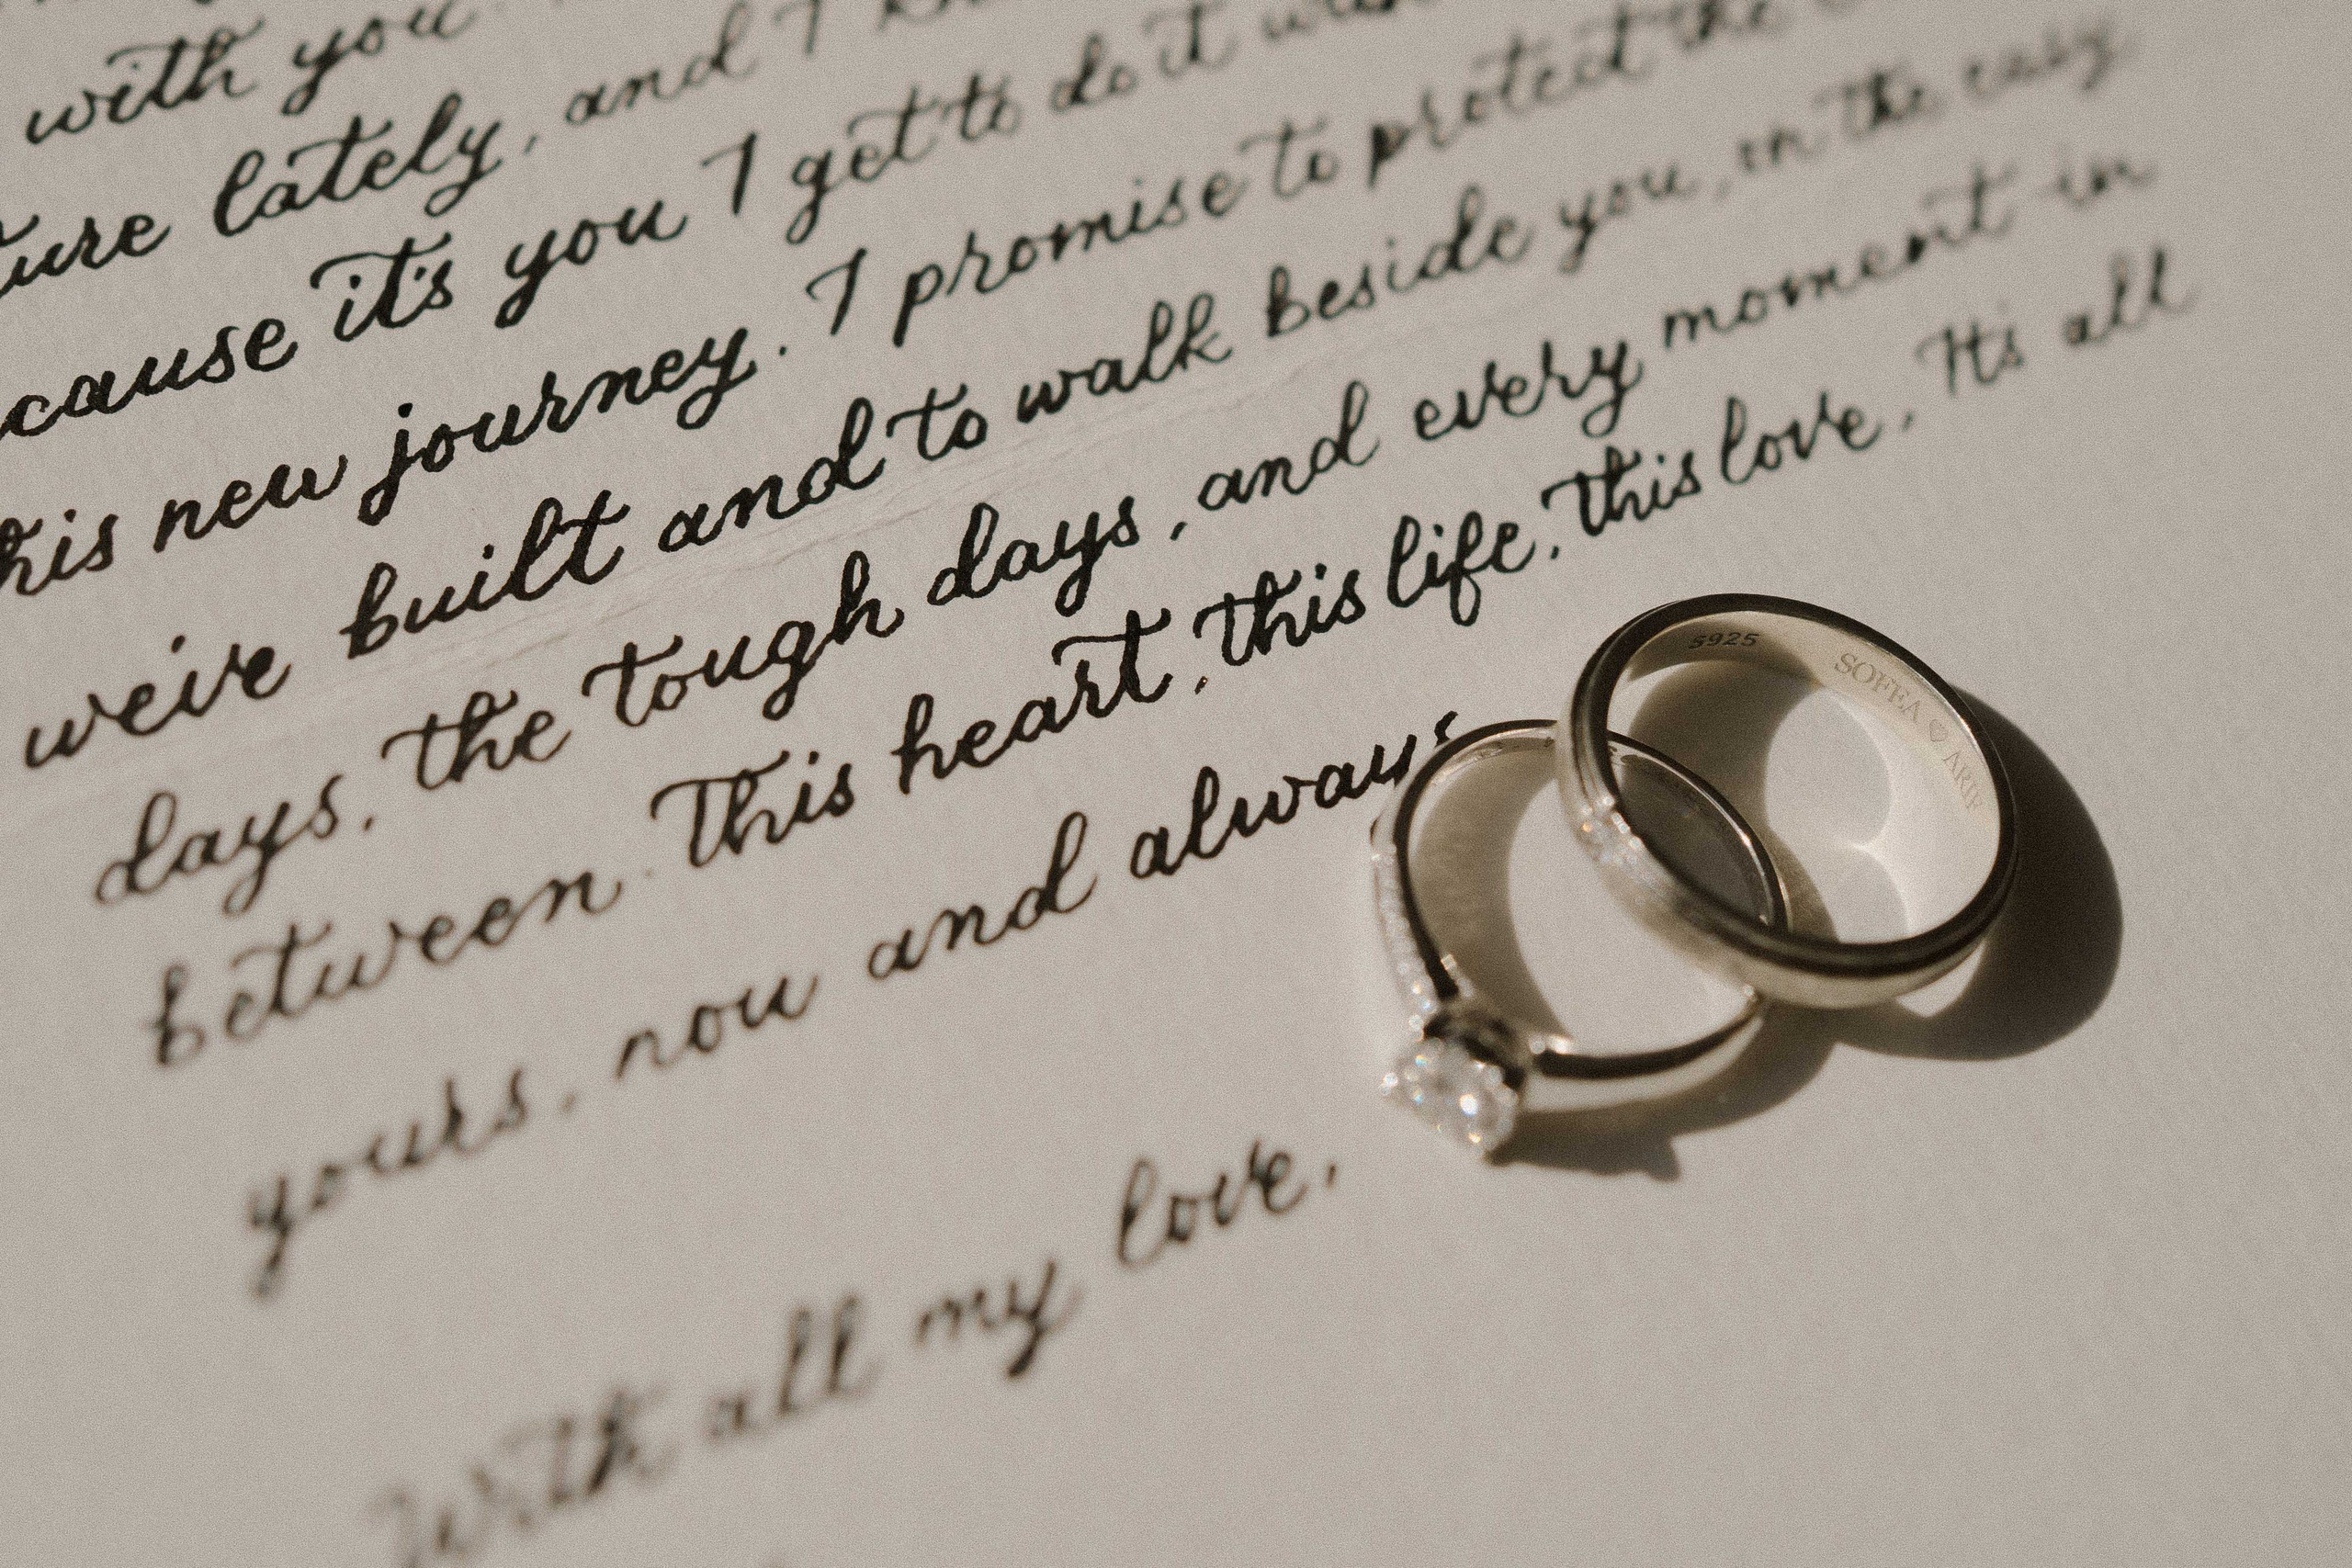 with you.
lately, and I
cause it's you I get to do it
his new journey. I promise to protect the
we've built and to walk beside you, in the easy
days, the tough days, and every moment in
between. This heart, this life, this love. It's all
yours, now and always
With all my love,
S925
SOFEA ♡ ARIF